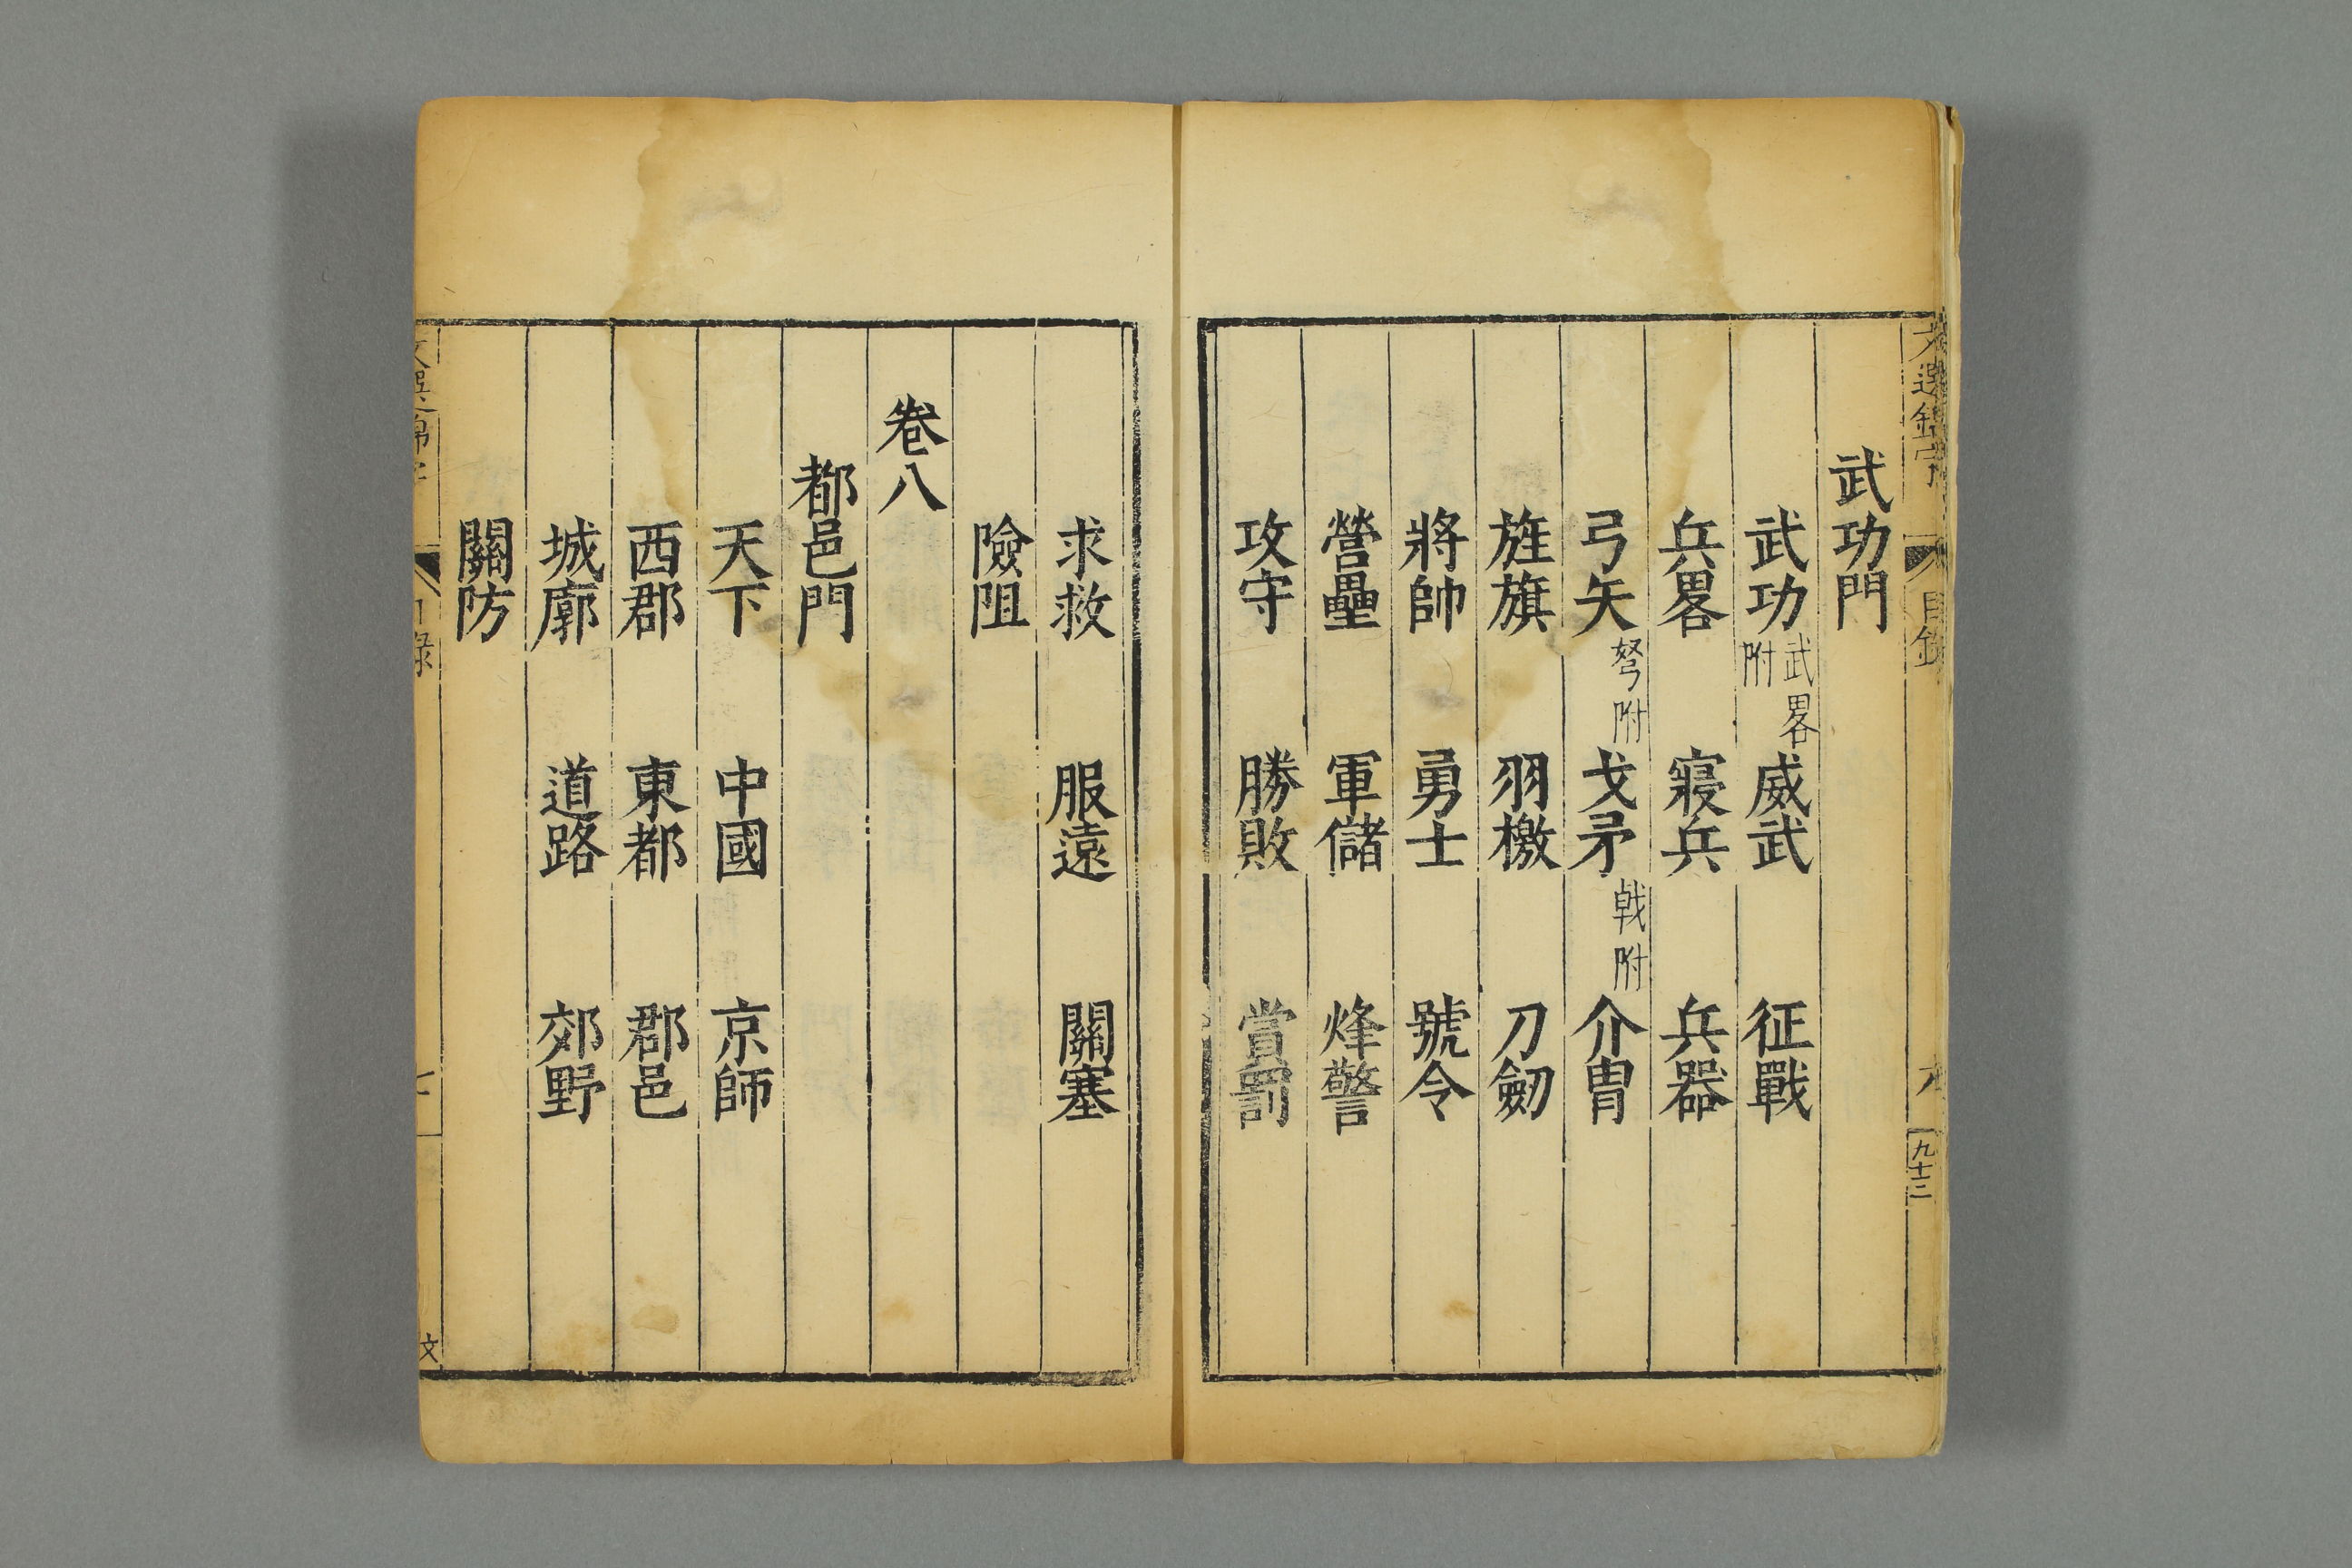 武功門
武功 武畧附 威武 征戰
兵畧 寢兵 兵器
弓矢 弩附 戈矛 戟附 介冑
旌旗 羽檄 刀劒
將帥 勇士 號令
營壘 軍儲 烽警
攻守 勝敗 賞罰
求救 服遠 關塞
險阻
卷八
都邑門
天下 中國 京師
西郡 東都 郡邑
城廓 道路 郊野
關防
文選錦字
目錄
九十二
文